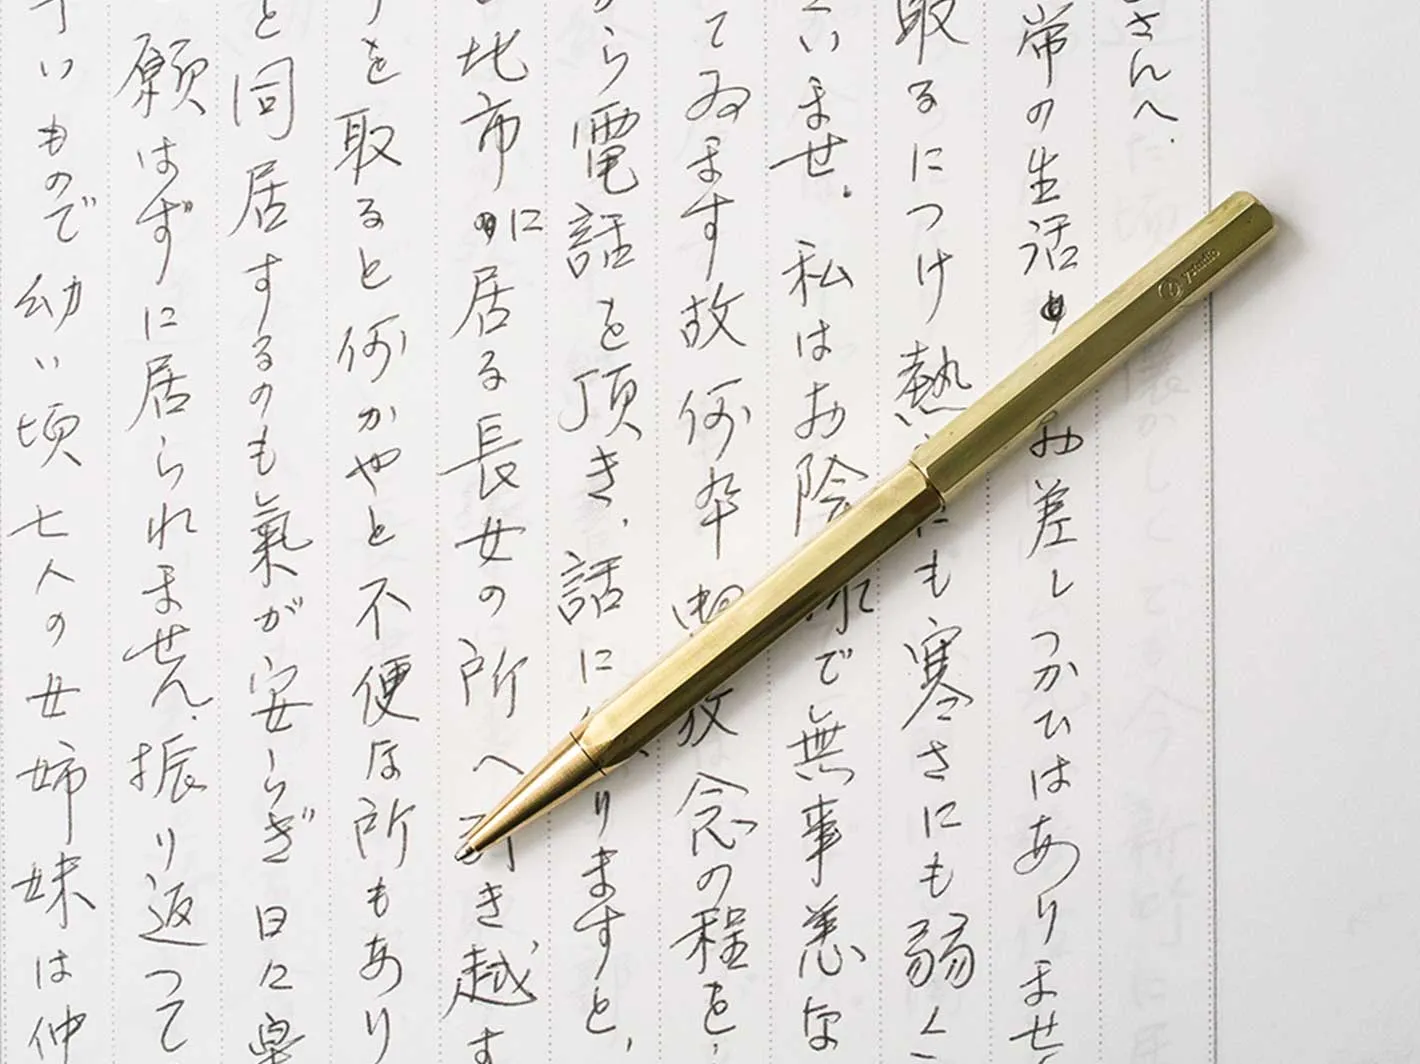 さんへ.
常の生活
お差しつかひはありませ
取るにつけ熱
にも寒さにも弱く
いませ. 私はお陰
で無事息な
てゐます故何卒
放
念の程を.
から電話を頂き. 話に
りますと,
此市に居る長女の所へ
き越す
を取ると何かやと不便な所もあり
と同居するのも氣が安らぎ日に
願はずに居られません. 振り返って
いもので幼い頃七人の女姉妹は仲
ystudio